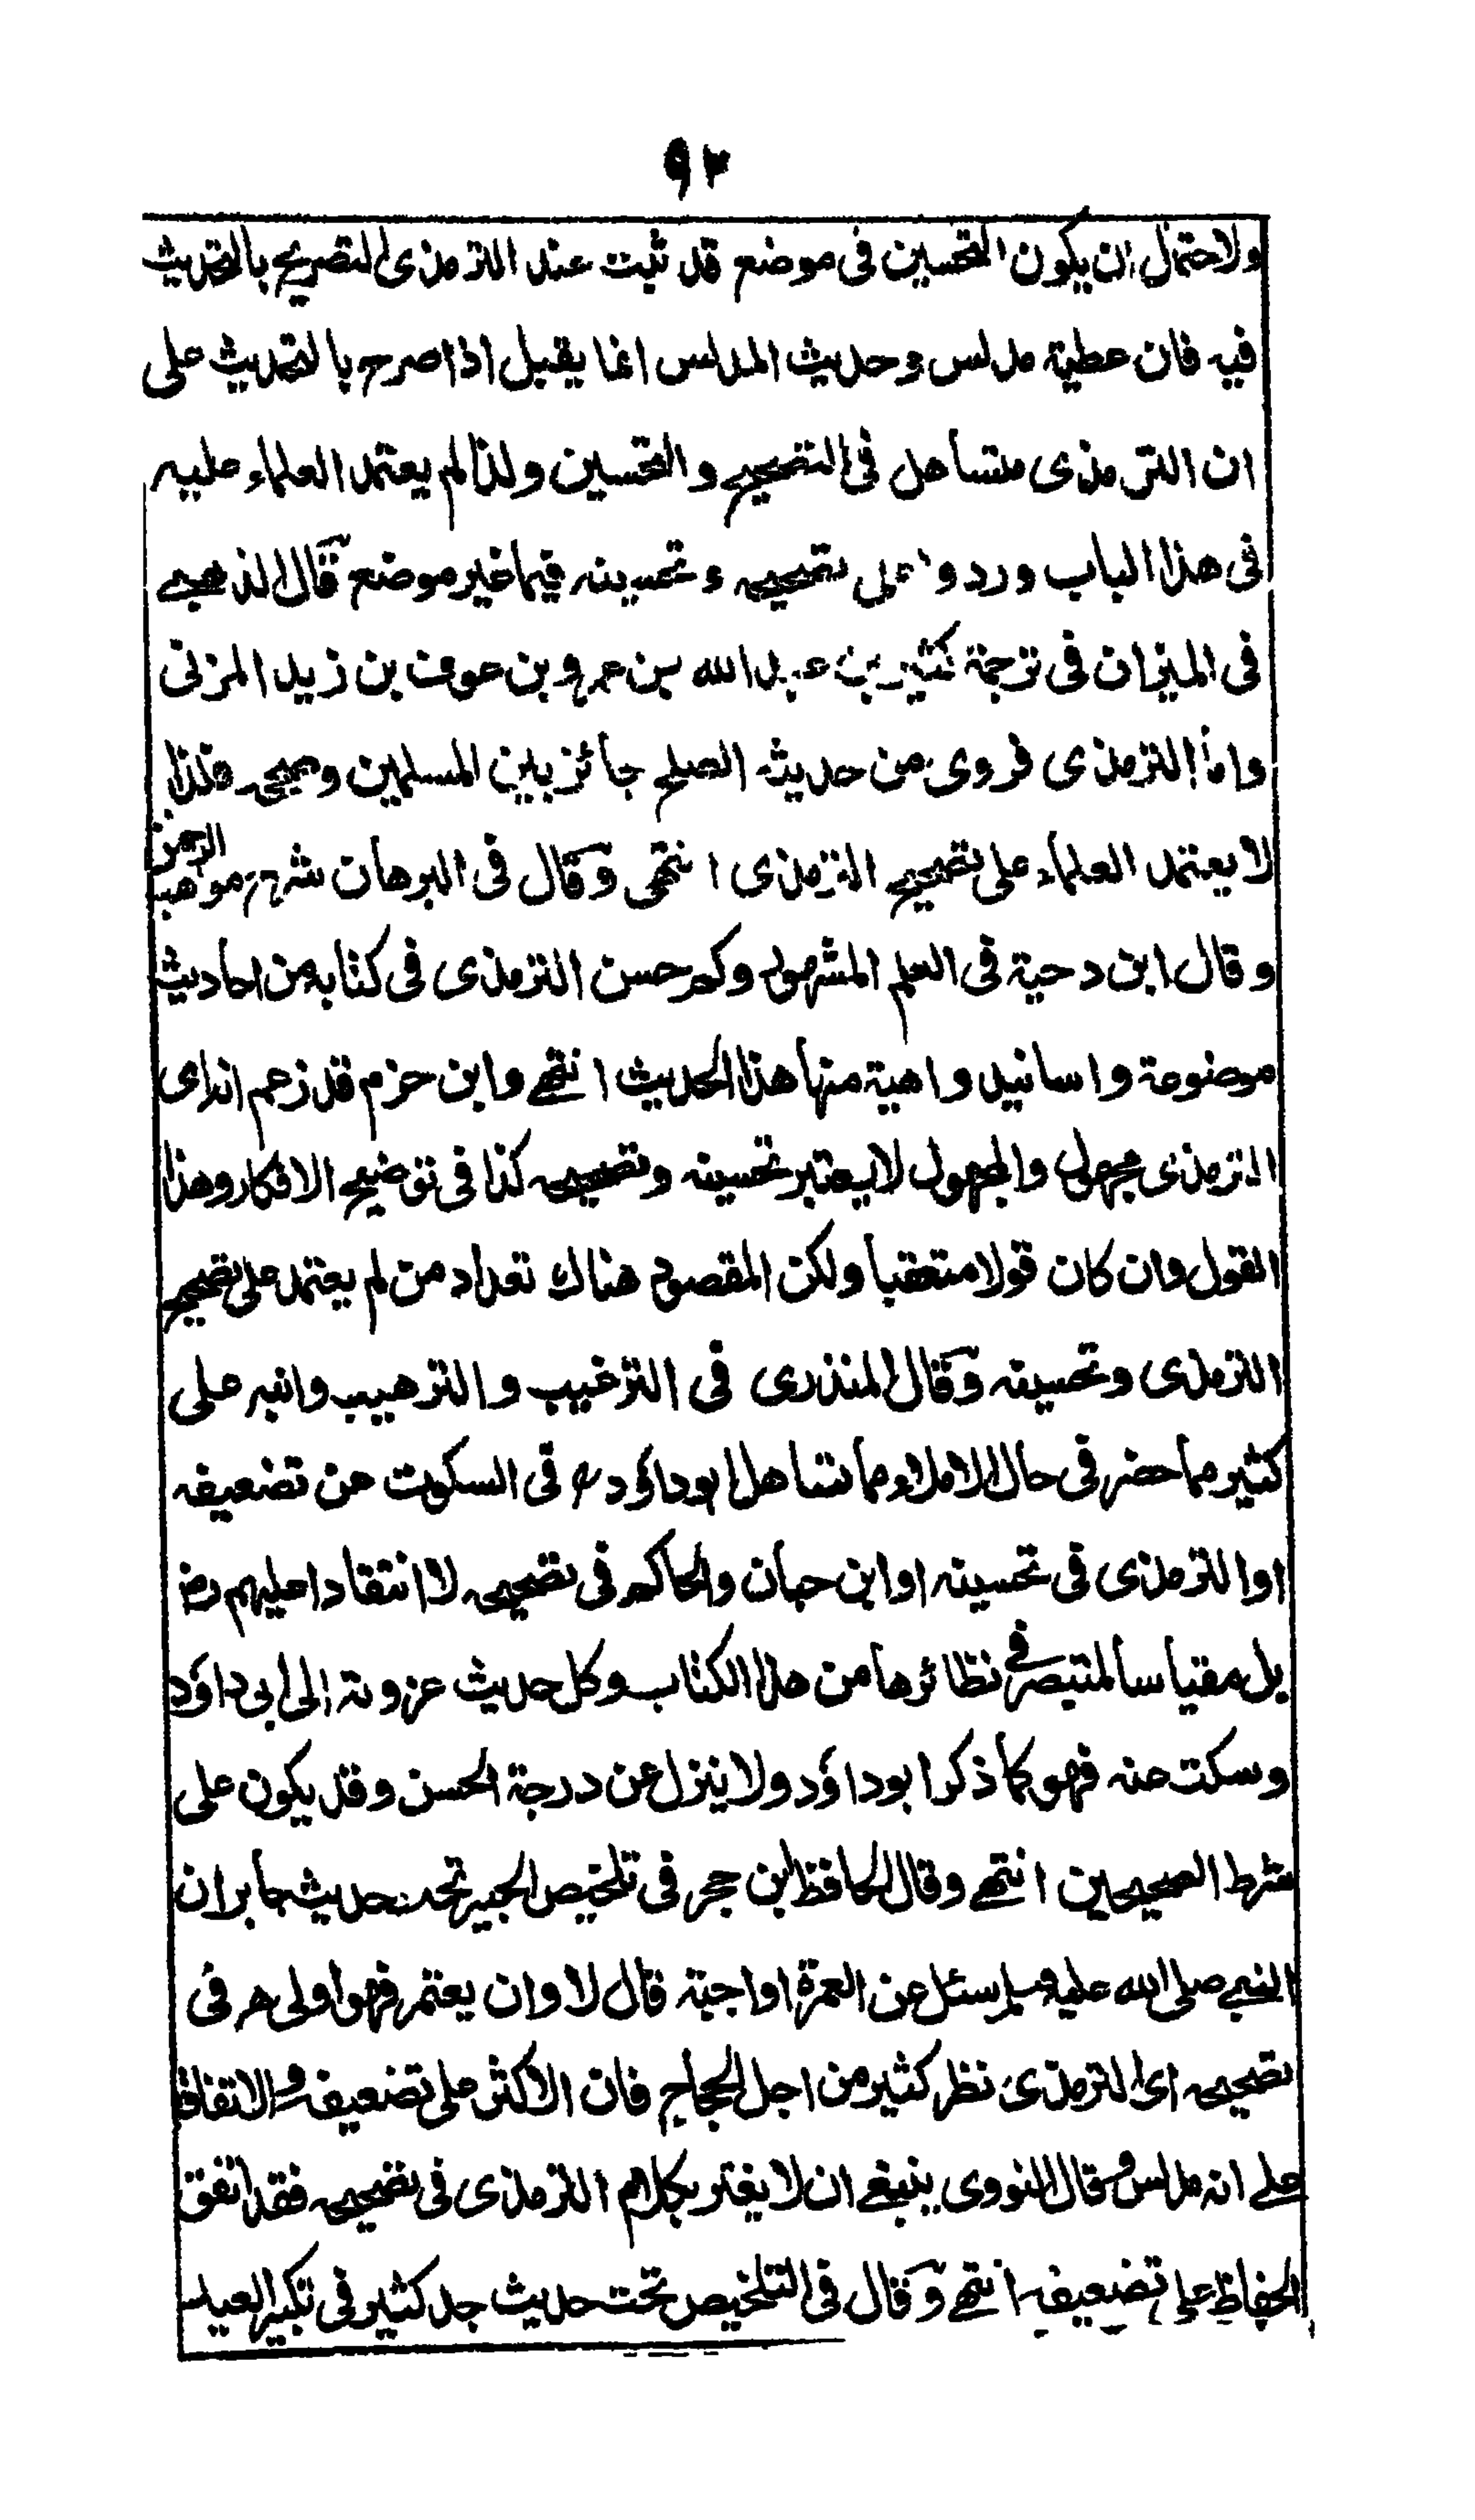 ٩٢
ولاحتمال ان يكون التحسين فى موضع قد ثبت عند الترمذى التصريح بالتحديث
فيه فان عطية مدلس وحديث المدلس انما يقبل اذا صرح بالتحديث على
ان الترمذى متساهل فى التصحيح والتحسين ولذا لم يعتمد العلماء عليه
فى هذا الباب وردوا على تصحيحه وتحسينه فيما غير موضع قال الذهبى
فى الميزان فى ترجمة كثير بن عبد الله بن عمرو بن عوف بن زيد المزنى
واما الترمذى فروى من حديثه الصلح جائز بين المسلمين وصححه فلذا
لا يعتمد العلماء على تصحيح الترمذى انتهى وقال فى البرهان شرح مواهب الرحمن
وقال ابن دحية فى العلم المشهور وكم حسن الترمذى فى كتابه من احاديث
موضوعة واسانيد واهية منها هذا الحديث انتهى وابن حزم قد زعم انه اى
الترمذى مجهول والمجهول لا يعتبر تحسينه وتصحيحه كذا فى توضيح الافكار وهذا
القول وان كان قولا متعقبا ولكن المقصود هناك تعداد من لم يعتمد على تصحيح
الترمذى وتحسينه وقال المنذرى فى الترغيب والترهيب وانبه على
كثير مما حضر فى حال الاملاء مما تساهل ابو داؤد رح فى السكوت عن تضعيفه
او الترمذى فى تحسينه او ابن حبان والحاكم فى تصحيحه لا انتقادا عليهم رض
بل مقياسا لمتبصر فى نظائرها من هذا الكتاب وكل حديث عزوته الى ابى داؤد
وسكت عنه فهو كما ذكر ابو داؤد ولا ينزل عن درجة الحسن وقد يكون على
شرط الصحيحين انتهى وقال الحافظ ابن حجر فى تلخيص الحبير تحت حديث جابر ان
النبى صلى الله عليه وسلم سئل عن العمرة اواجبة قال لا وان يعتمر فهو اولى حر فى
تصحيحه اى الترمذى نظر كثير من اجل الحجاج فان الاكثر على تضعيفه والاتفاق
على انه مدلس وقال النووى ينبغى ان لا يغتر بكلام الترمذى فى تصحيحه فقد اتفق
الحفاظ على تضعيفه انتهى وقال فى التلخيص تحت حديث جد كثير فى تكبير العيد